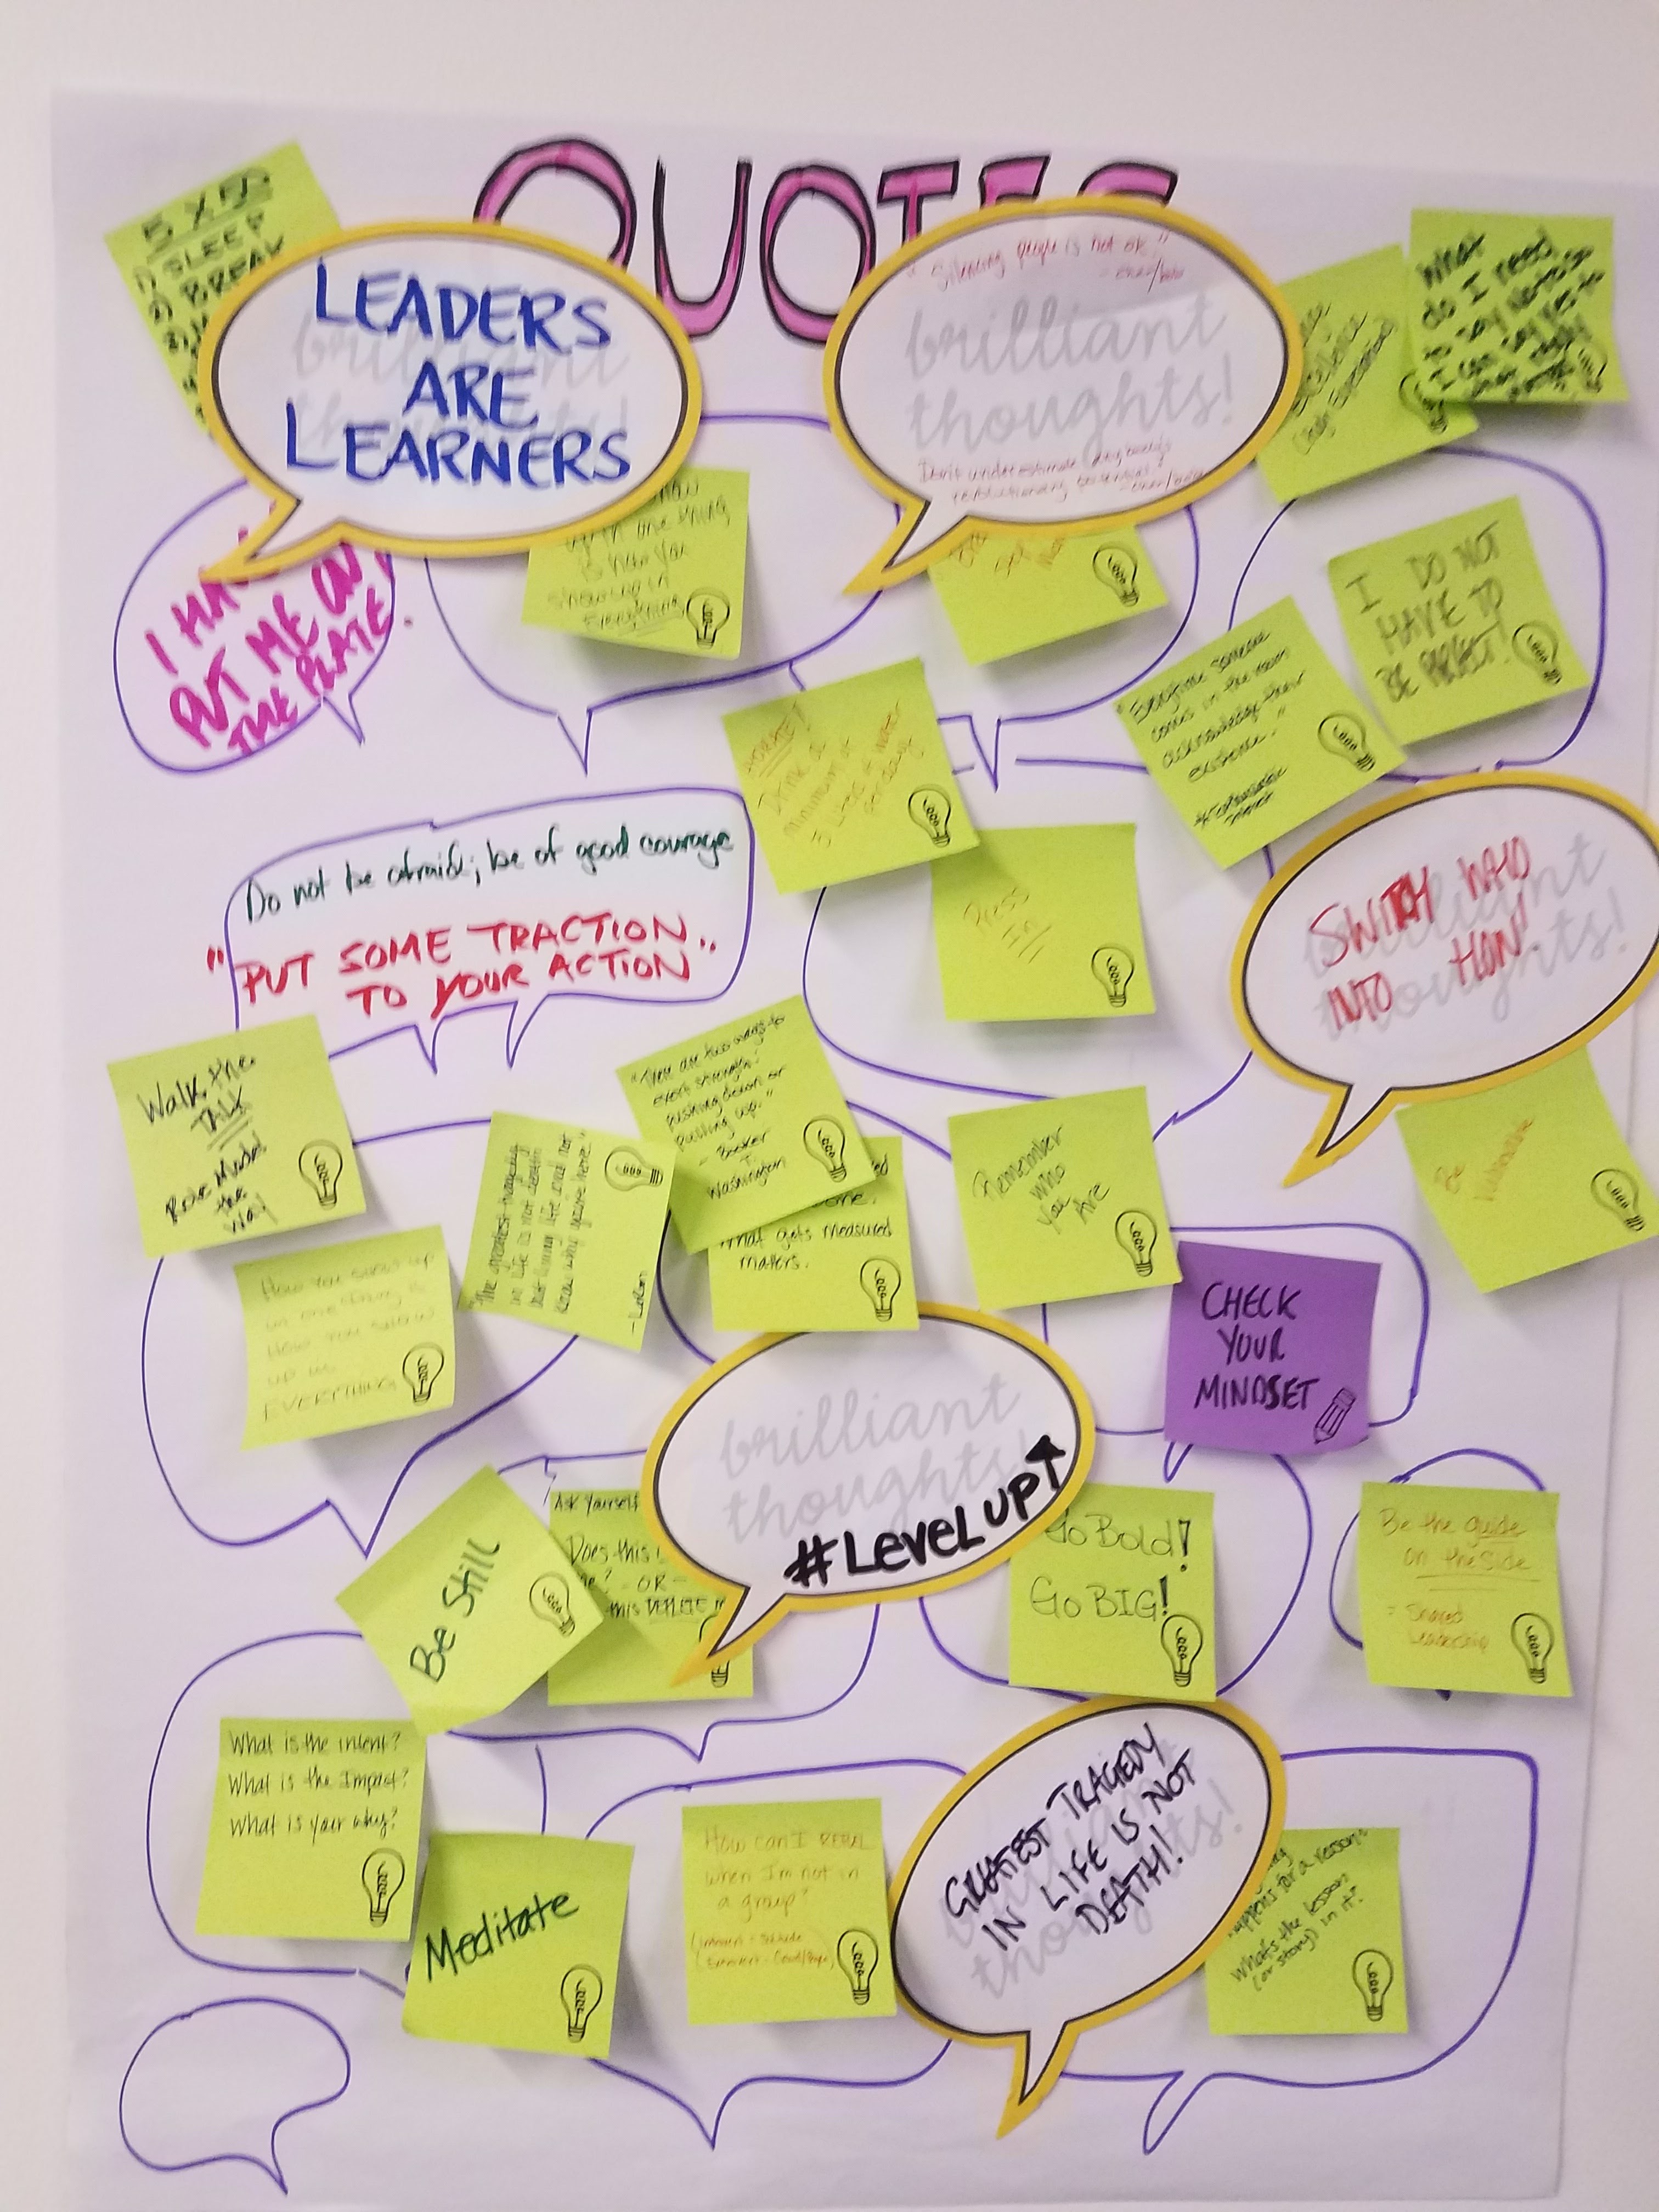 QUOTES
5 X 5
SLEEP
BREAK
LEADERS
ARE
LEARNERS
"Silencing people is not ok"
brilliant
thoughts!
Don't underestimate
revolutionary
What
do I need
to say No to so
I can say yes to
I
PUT ME ON
THE PLATE.
one thing
is how you
show up in
Everything
I DO NOT
HAVE TO
BE PERFECT!
"Everytime someone
comes in the room
acknowledge their
existence."
Drink a
minimum of
3 liters of water
Press
In
Do not be afraid; be of good courage
"PUT SOME TRACTION
TO YOUR ACTION"
SWITCH WHO
INTO HOW!
brilliant
thoughts!
Be
Walk the
TALK
Role Model
the
Way
"There are two ways to
exert strength:
pushing down or
pulling up."
- Booker
T.
Washington
"The greatest tragedy
in life is not death
but living life and not
know why you're here."
What gets measured
matters.
Remember
who
you
Are
How you show up
in one thing is
How you show
up in
EVERYTHING
CHECK
YOUR
MINDSET
brilliant
thoughts!
#LEVEL UP
Be Still
Ask Yourself
Does this
? - OR -
this DEPLETE
Go Bold!
Go BIG!
Be the guide
on the side
= Shared
Leadership
What is the intent?
What is the Impact?
What is your why?
Meditate
How can I
when I'm not in
a group?
GREATEST TRAGEDY
IN LIFE IS NOT
DEATH!
happens for a reason:
What's the lesson
(or story) in it?